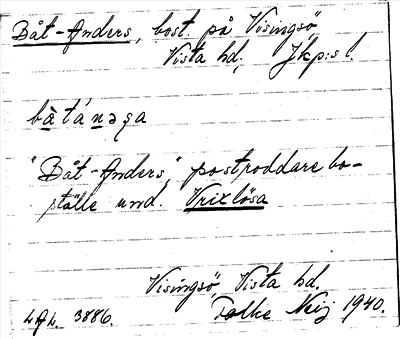 Båt-Anders, bost. på Visingsö,
Vista hd, Jkp:s l.
båtánəʂa
"Båt-Anders", postroddare bo-
ställe und. Vrixlösa
Visingsö, Vista hd.
LAL. 3886. Folke Neij 1940.